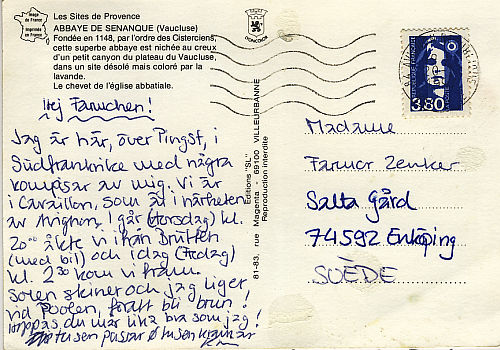 Image de France
Imprimée en France
Les Sites de Provence
ABBAYE DE SENANQUE (Vaucluse)
Fondée en 1148, par l'ordre des Cisterciens,
cette superbe abbaye est nichée au creux
d'un petit canyon du plateau du Vaucluse,
dans un site désolé mais coloré par la
lavande.
Le chevet de l'église abbatiale.
Hej Faruchen!
Jag är här, över Pingst, i
Südfrankrike med några
kompisar av mig. Vi är
i Cavaillon, som är i närheten
av Avignon. I går (torsdag) kl.
20⁰⁰ åkte vi från
(med bil) och idag (Fredag)
kl. 2³⁰ kom vi fram.
Solen skiner och jag ligger
vid Poolen, för att bli brun!
hoppas du mår lika bra som jag!
tusen pussar & tusen kramar
Editions "SL"
81-83, rue Magenta - 69100 VILLEURBANNE
Reproduction interdite
REPUBLIQUE FRANCAISE
3,80
Madame
Farmor Zenker
Salta Gård
74592 Enköping
SUÈDE